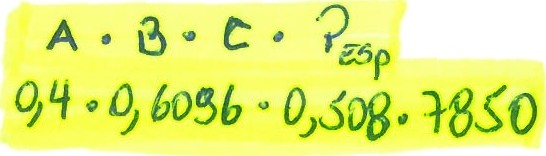 A · B · C · P_ESP
0,4 · 0,6096 · 0,508 · 7850